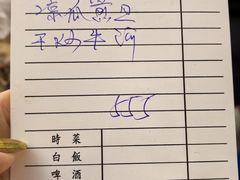 凉瓜黄旦
干炒牛河
555
時菜
白飯
啤酒